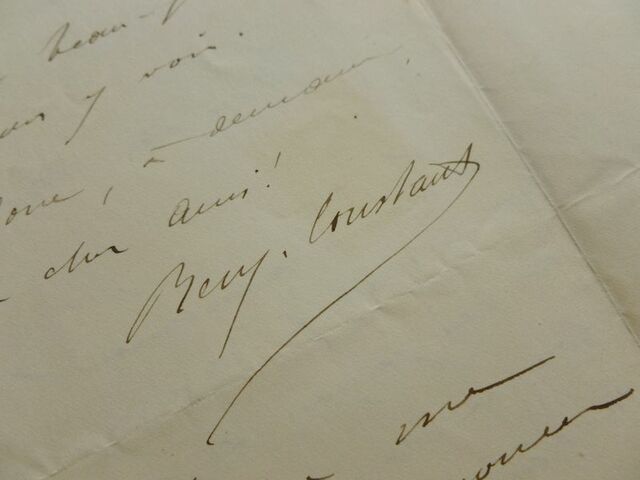 beau-
y voir.
à demain,
cher ami!
Benj. Constant
me